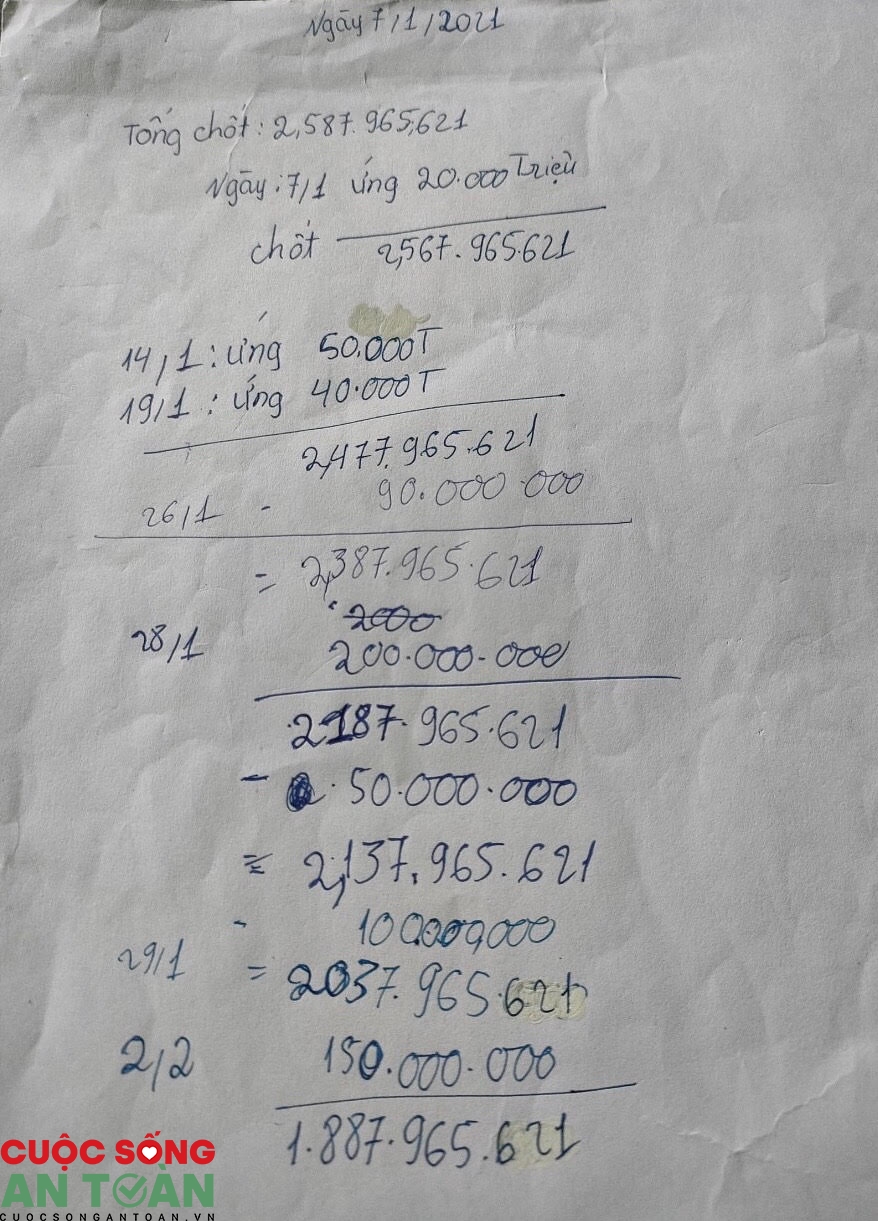 Ngày 7/1/2021
Tổng chốt: 2,587.965,621
Ngày: 7/1 ứng 20.000 Triệu
chốt 2,567.965.621
14/1: ứng 50.000T
19/1: ứng 40.000T
2,477.965.621
26/1 - 90.000.000
= 2,387.965.621
2000
28/1 200.000.000
2187.965.621
- 50.000.000
= 2,137.965.621
- 100.000,000
29/1 = 2037.965.621
2/2 150.000.000
1.887.965.621
CUỘC SỐNG
AN TOÀN
CUOCSONGANTOAN.VN